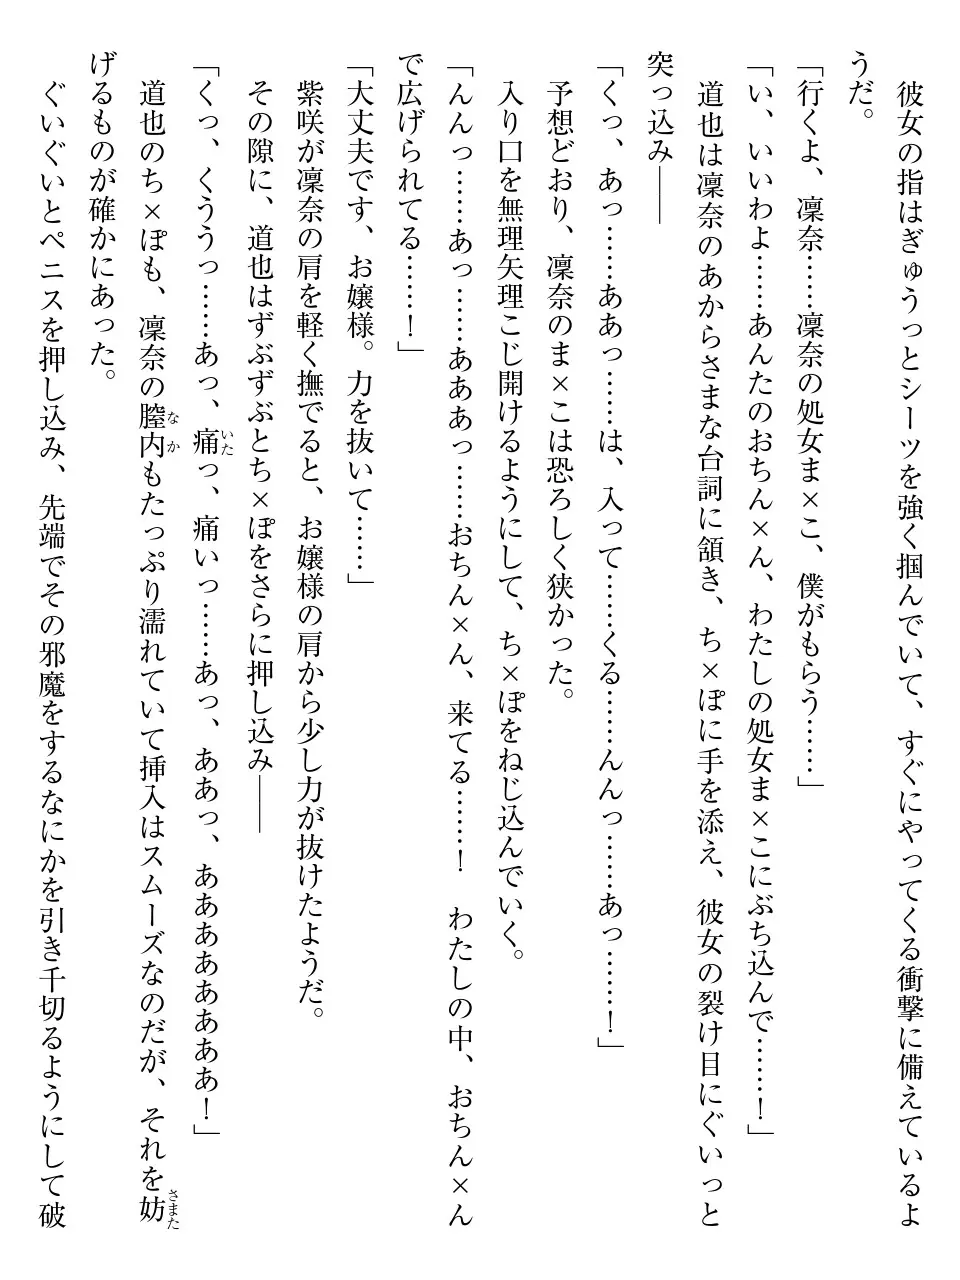 彼女の指はぎゅうっとシーツを強く掴んでいて、すぐにやってくる衝撃に備えているよ
うだ。
「行くよ、凛奈……凛奈の処女ま×こ、僕がもらう……」
「い、いいわよ……あんたのおちん×ん、わたしの処女ま×こにぶち込んで……！」
道也は凛奈のあからさまな台詞に頷き、ち×ぽに手を添え、彼女の裂け目にぐいっと
突っ込み――
「くっ、あっ……ああっ……は、入って……くる……んんっ……あっ……！」
予想どおり、凛奈のま×こは恐ろしく狭かった。
入り口を無理矢理こじ開けるようにして、ち×ぽをねじ込んでいく。
「んんっ……あっ……あああっ……おちん×ん、来てる……！　わたしの中、おちん×ん
で広げられてる……！」
「大丈夫です、お嬢様。力を抜いて……」
紫咲が凛奈の肩を軽く撫でると、お嬢様の肩から少し力が抜けたようだ。
その隙に、道也はずぶずぶとち×ぽをさらに押し込み――
「くっ、くううっ……あっ、痛っ、痛いっ……あっ、ああっ、ああああああああ！」
道也のち×ぽも、凛奈の膣内もたっぷり濡れていて挿入はスムーズなのだが、それを妨
げるものが確かにあった。
ぐいぐいとペニスを押し込み、先端でその邪魔をするなにかを引き千切るようにして破